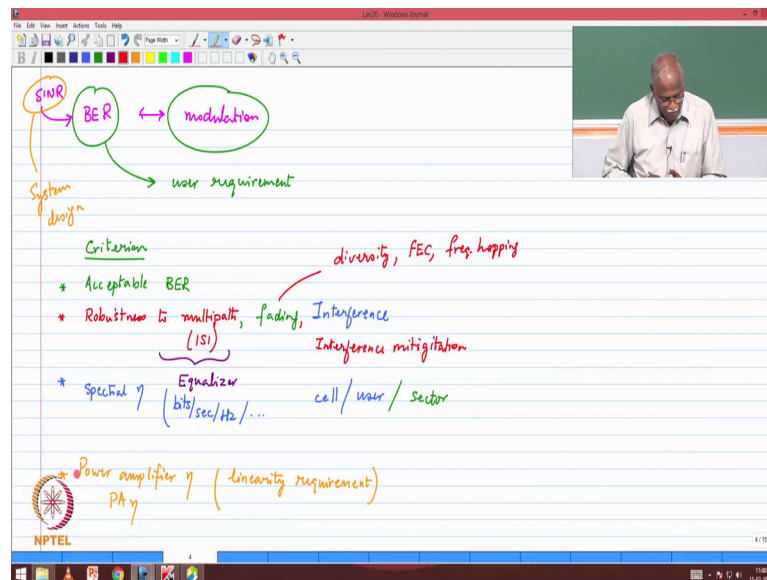 Lec20 - Windows Journal
File Edit View Insert Actions Tools Help
Page Width
B I
SINR
BER ↔ modulation
user requirement
System
design
Criterion
diversity, FEC, freq. hopping
* Acceptable BER
* Robustness to multipath, fading, Interference
(ISI) Interference mitigitation
Equalizer
* Spectral η (bits/sec/Hz/... cell/user/sector
* Power amplifier η (linearity requirement)
PA η
NPTEL
4
4/15
11:08